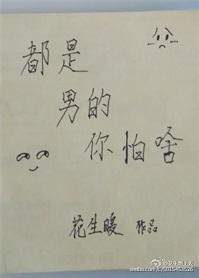 都是
男的
你怕啥
花生暖 作品